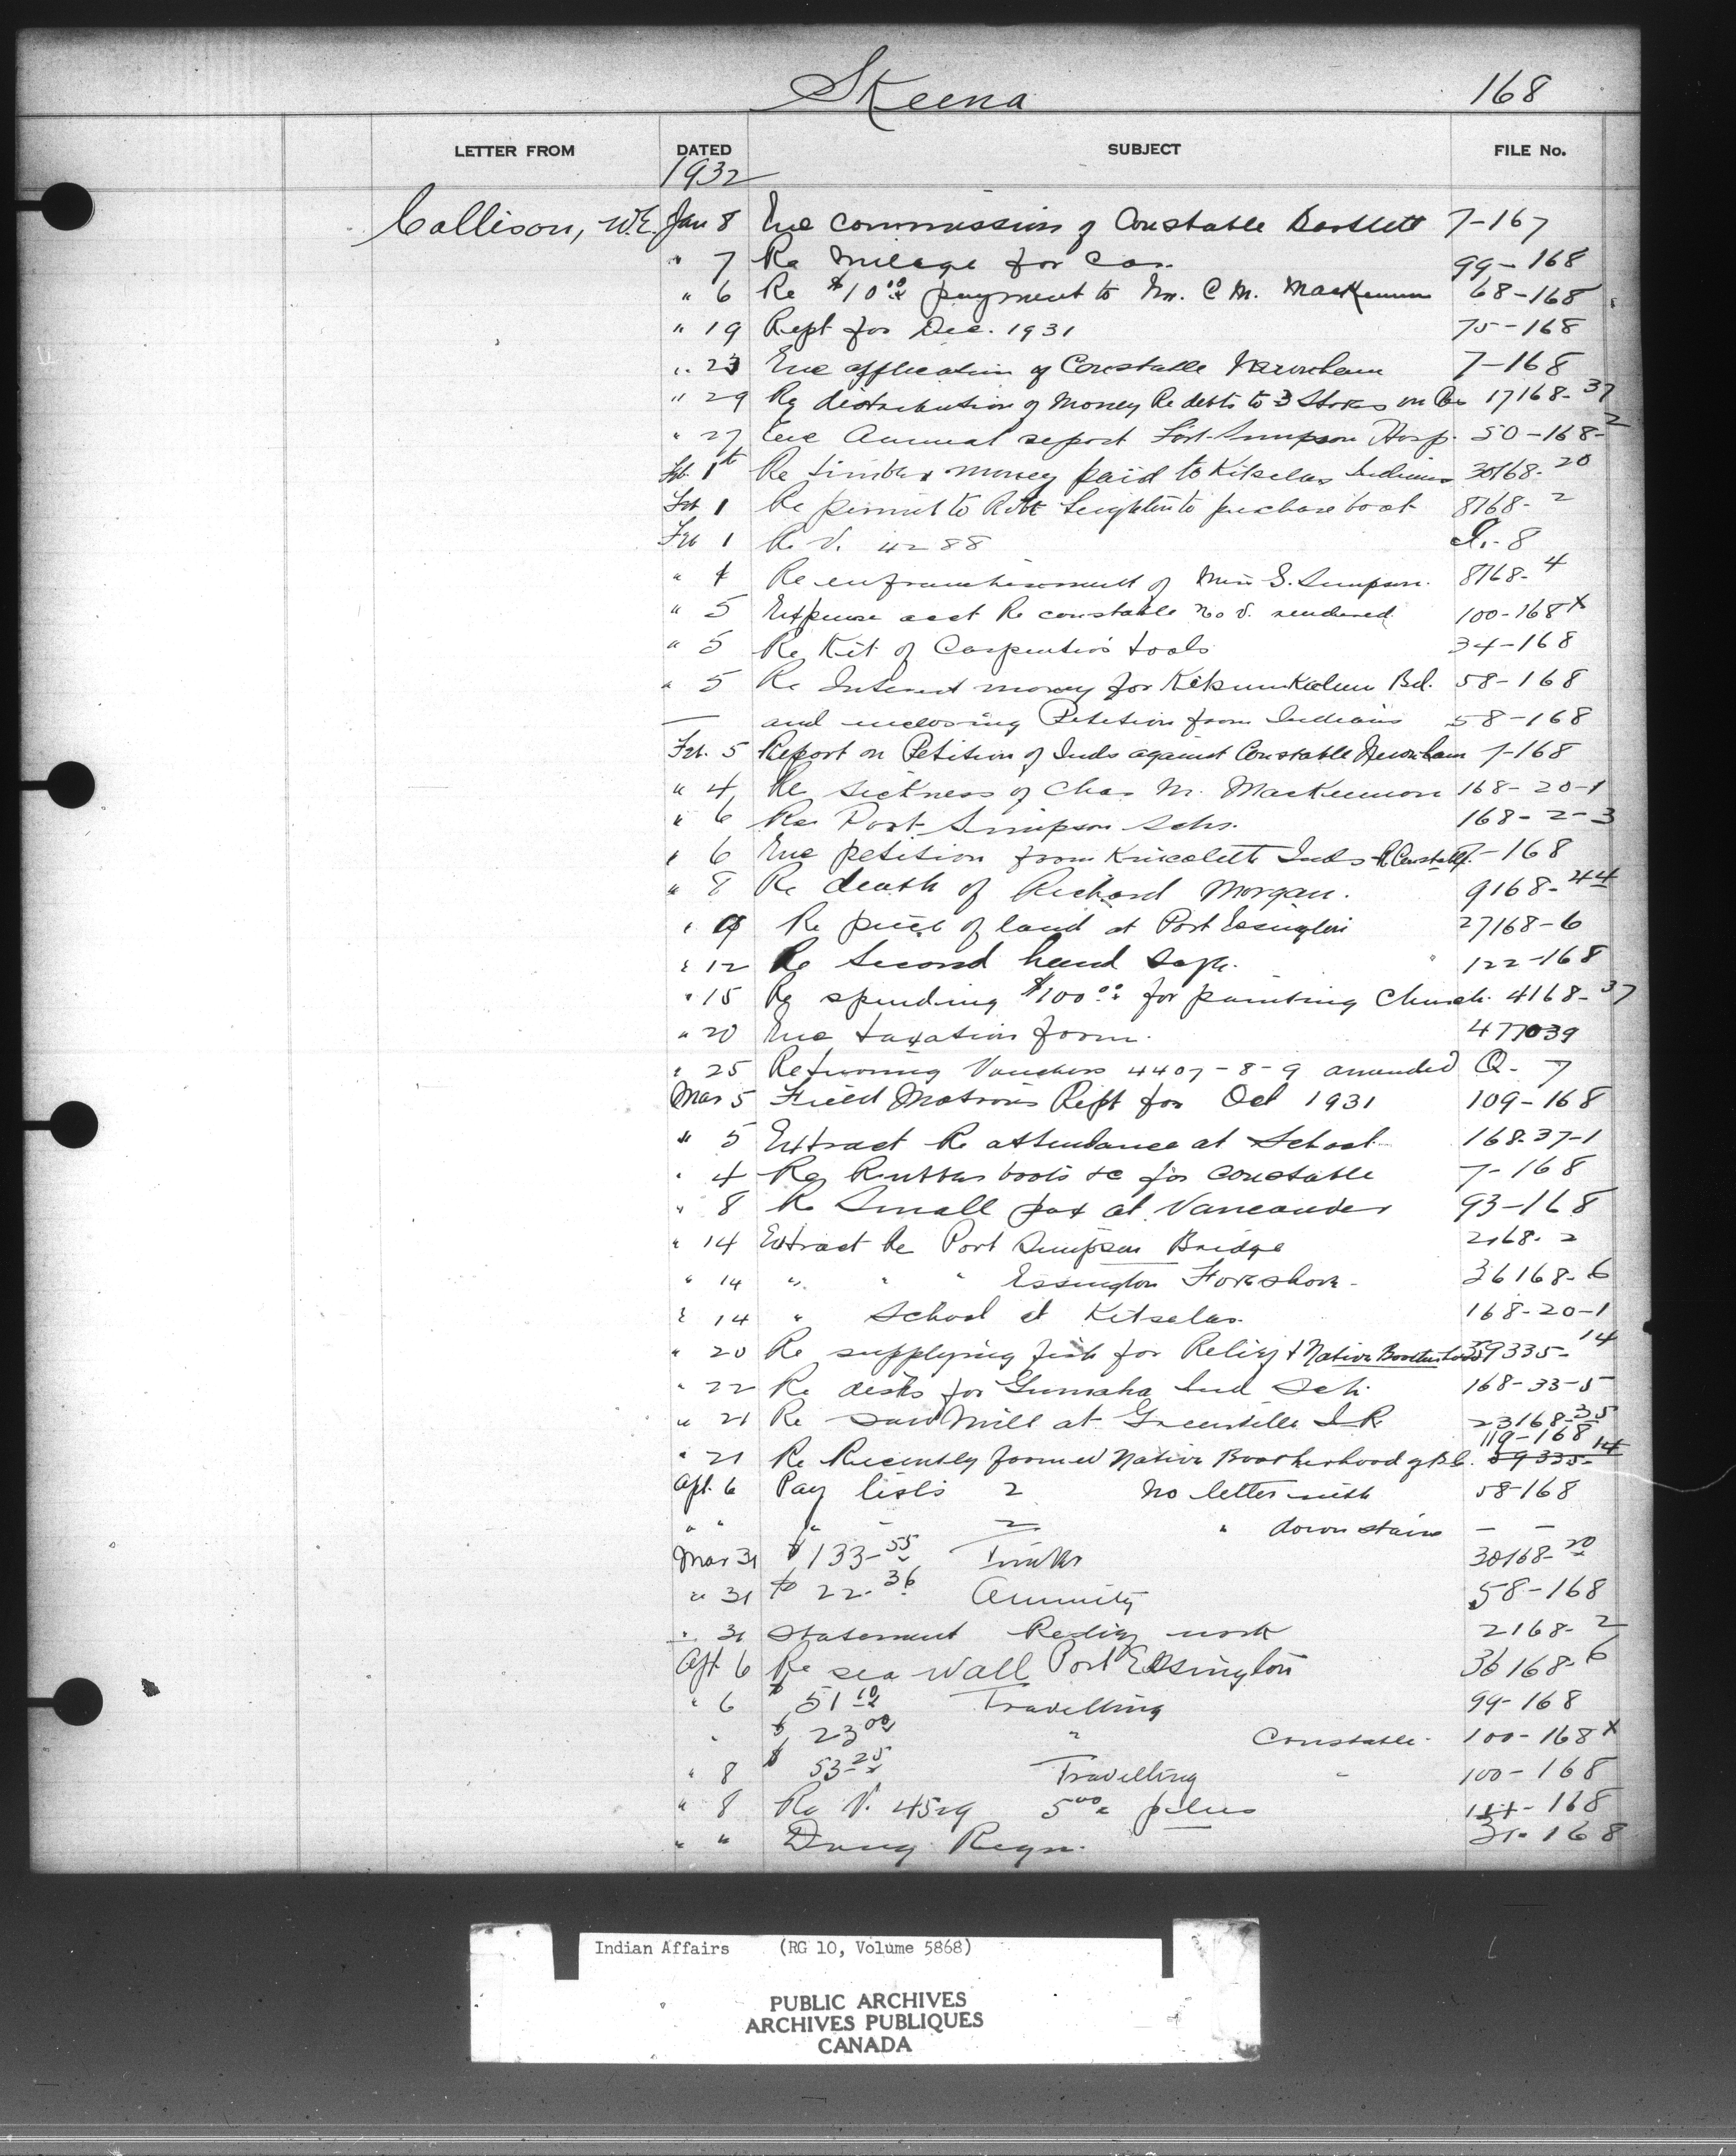 Skeena 168
LETTER FROM DATED SUBJECT FILE No.
1932
Collison, W.E. Jan 8 Enc commission of Constable Bartlett 7-167
" 7 Re Mileage for Car. 99-168
" 6 Re $10.00 payment to Mr. C M. MacKennon 68-168
" 19 Rept for Dec. 1931 75-168
" 23 Enc application of Constable Newnham 7-168
" 29 Re distribution of Money Re debts to 3 Stores on 17168-37
" 27 Enc Annual report Port Simpson Hosp. 50-168-2
Feb. 1st Re timber money paid to Kitselas Indians 30168-20
Feb 1 Re permit to Robt Leighton to purchase boat 8168-2
Feb 1 Re V. 4288 8
" 4 Re enfranchisement of Miss S. Simpson. 8168-4
" 5 Expense acct Re constable no V. rendered 100-168x
" 5 Re Kit of Carpenters tools 34-168
" 5 Re Interest money for Kitsumkalum Bd. 58-168
— and enclosing Petition from Indians 58-168
Feb. 5 Report on Petition of Inds against Constable Newnham 7-168
" 4 Re sickness of Chas M. MacKennon 168-20-1
" 6 Re Port Simpson Schs. 168-2-3
" 6 Enc petition from Kincolith Inds Re Constable 7-168
" 8 Re death of Richard Morgan. 9168-44
" 9 Re piece of land at Port Essington 27168-6
" 12 Re Second hand Safe. " 122-168
" 15 Re spending $100.00 for painting Church. 4168-37
" 20 Enc taxation form. 477039
" 25 Returning Vouchers 4407-8-9 amended Q-7
Mar 5 Field Matrons Rept for Oct 1931 109-168
" 5 Extract Re attendance at School 168-37-1
" 4 Re Rubber boots &c for constable 7-168
" 8 Re Small pox at Vancouver 93-168
" 14 Extract Re Port Simpson Bridge 2168-2
" 14 " " " Essington Foreshore - 36168-6
" 14 " School at Kitselas. 168-20-1
" 20 Re supplying fish for Relief & Native Brotherhood 59335-14
" 22 Re desks for Gumaha Ind Sch. 168-33-5
" 21 Re Saw Mill at Greenville I.R. 23168-35
119-168
" 21 Re Recently formed Native Brotherhood of B.C. 59335-14
Apl. 6 Pay lists 2 No letter with 58-168
" " " - 2 " down stairs — —
Mar 31 $133.55 Timber 30168-20
" 31 $22.36 Annuity 58-168
" 31 Statement Relief work 2168-2
Apl 6 Re sea Wall Port Essington 36168-6
" 6 $51.10 Travelling 99-168
" $23.00 " Constable. 100-168x
" 8 $53.25 Travelling " 100-168
" 8 Re V. 4529 5.00 168
" " Drug Reqn. 168
Indian Affairs (RG 10, Volume 5868)
PUBLIC ARCHIVES
ARCHIVES PUBLIQUES
CANADA